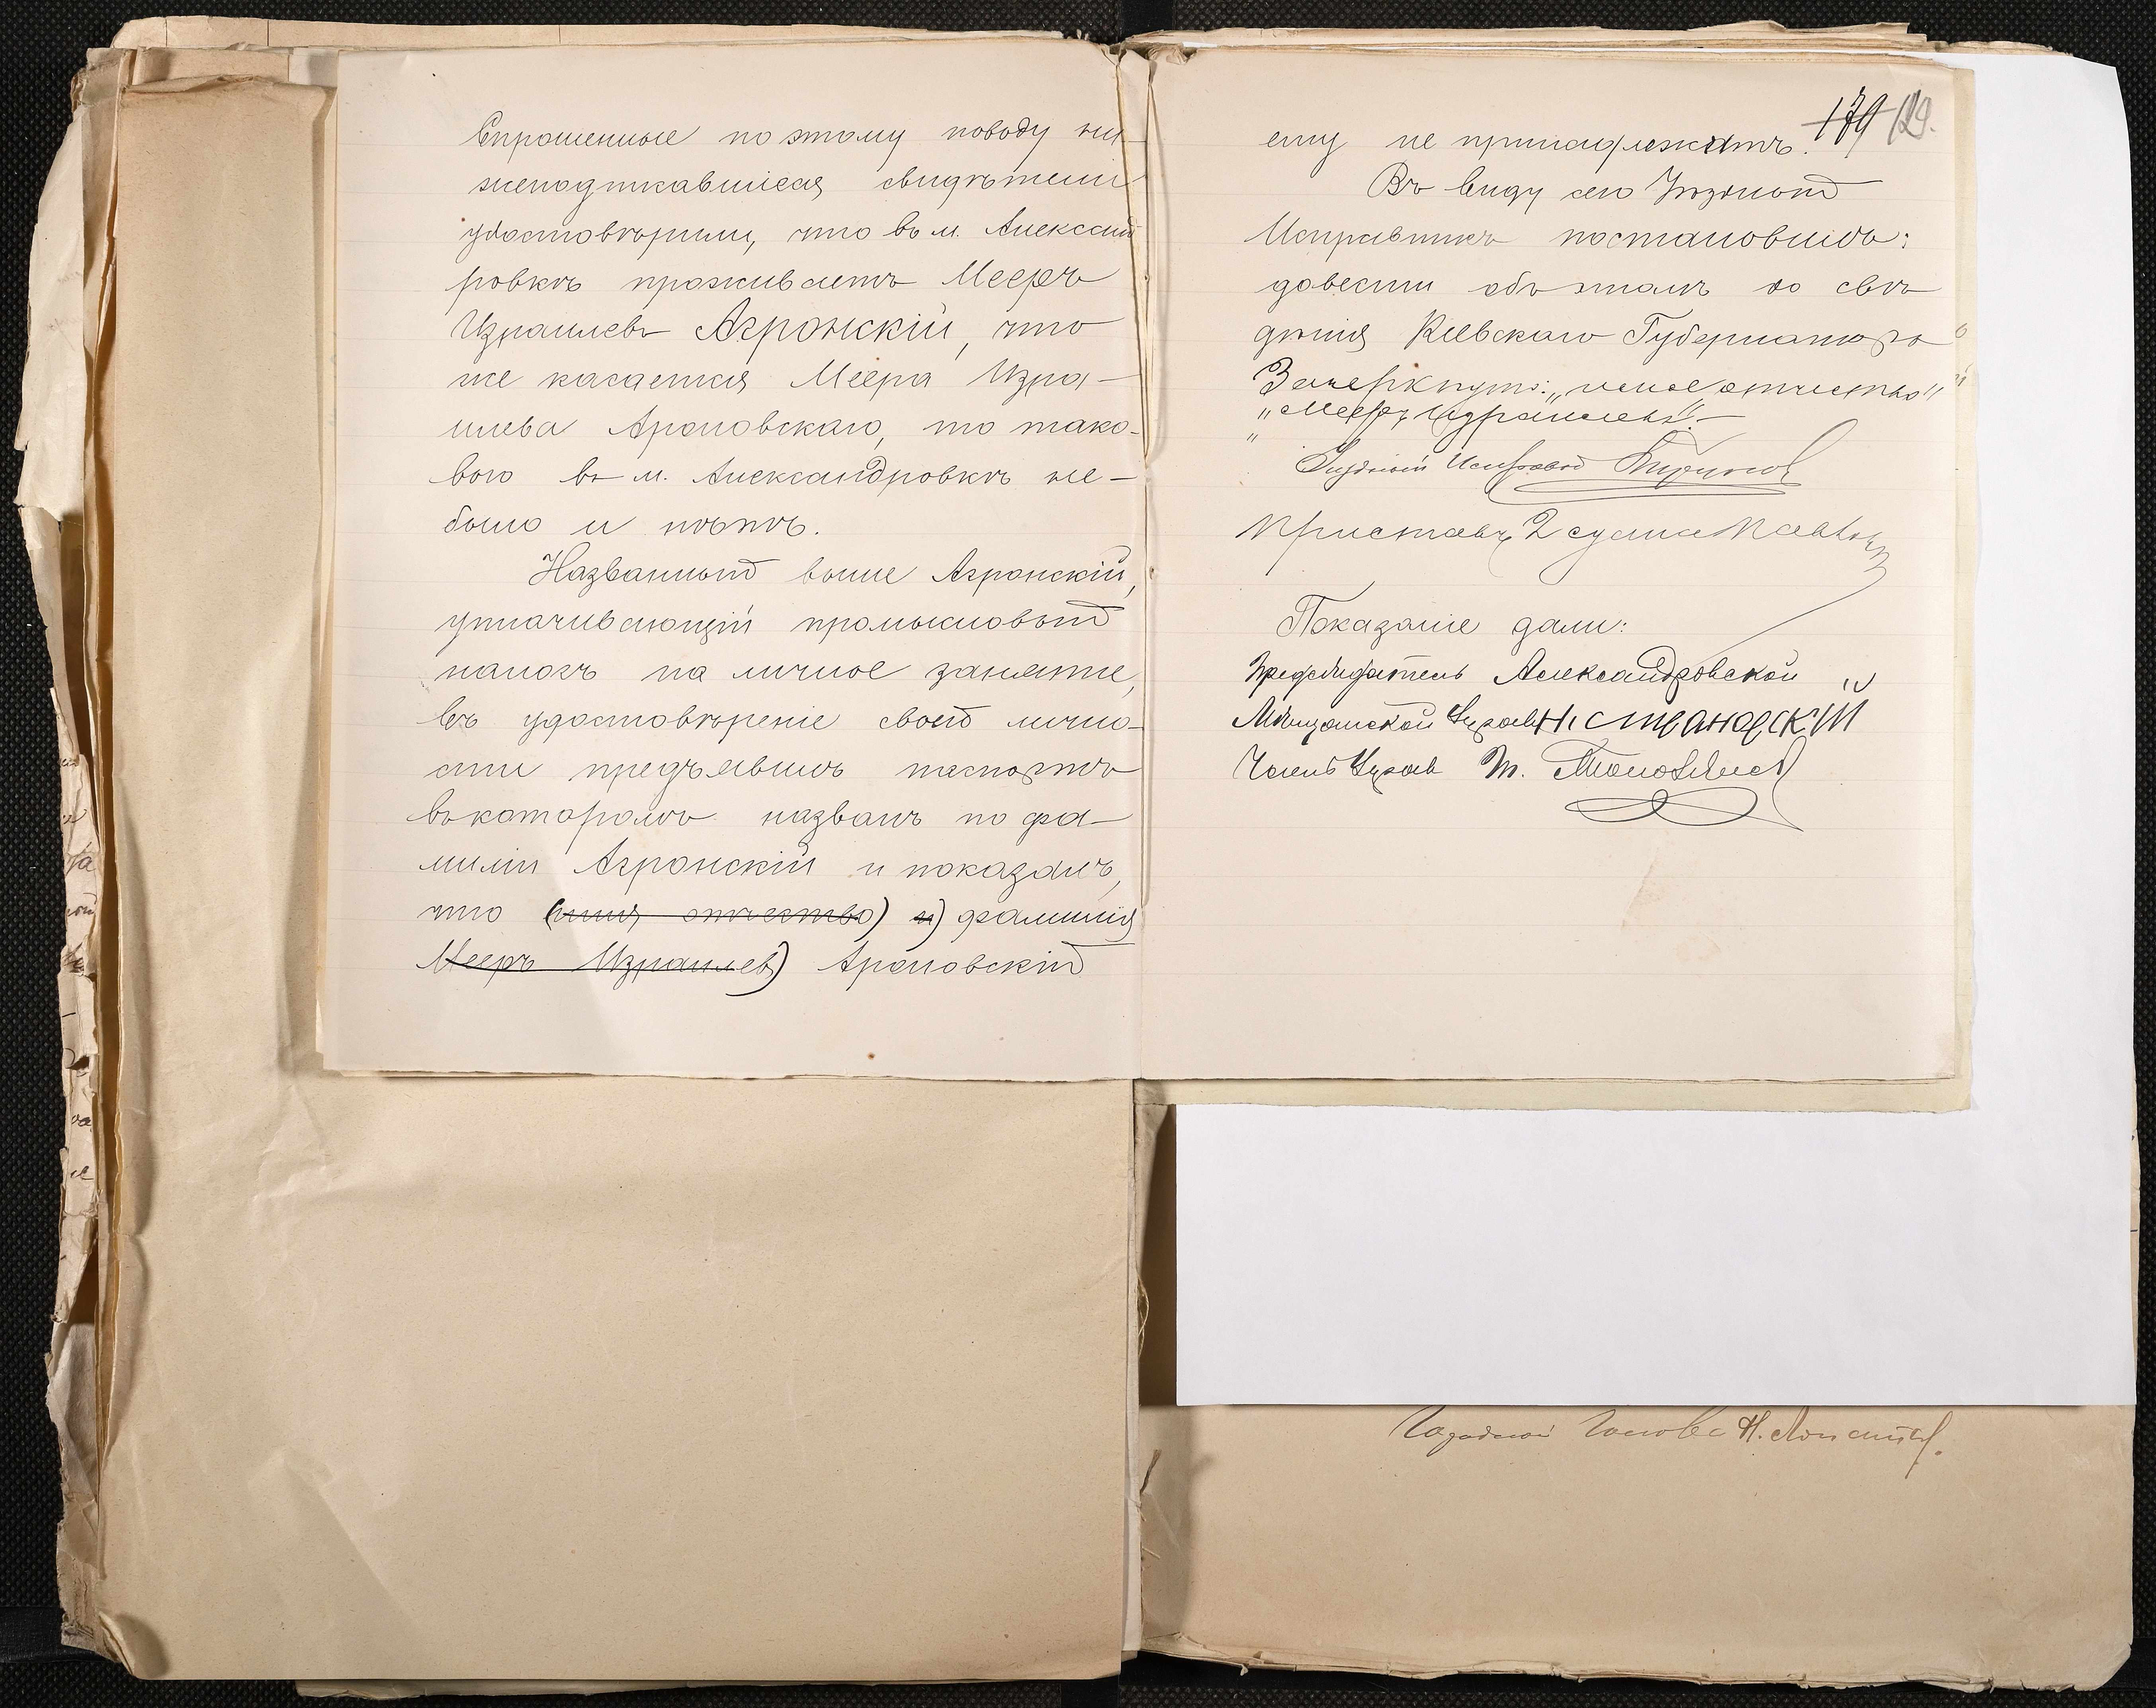 Спрошенные по этому поводу ни-
жеподписавшіеся свидѣтели
удостовѣрили, что въ м. Александ
ровкѣ проживаетъ Мееръ
Израилевъ Агронскій, что
же касается Меера Изра-
илева Ароновскаго, то тако-
вого въ м. Александровкѣ не-
было и нѣтъ.
Названный выше Агронскій,
уплачивающій промысловый
налогъ на личное занятіе,
въ удостовѣреніе своей лично-
сти предъявилъ паспортъ
въ которомъ названъ по фа-
миліи Агронскій и показалъ,
что (имя, отчество) и) фамилія
Мееръ Израилев) Ароновскій
179
ему не принадлежитъ.
Въ виду сего Уѣздный
Исправникъ постановилъ:
довести объ этомъ до свѣ-
дѣнія Кіевскаго Губернатора
Зачеркнуто: отчество"
"Мееръ Израилевъ".
Уѣздный Исправ
Приставъ 2 стана
Показаніе дали:
Предсѣдатель Александровской
Мѣщанской Управы
Членъ Управ
Городской Голова Н.